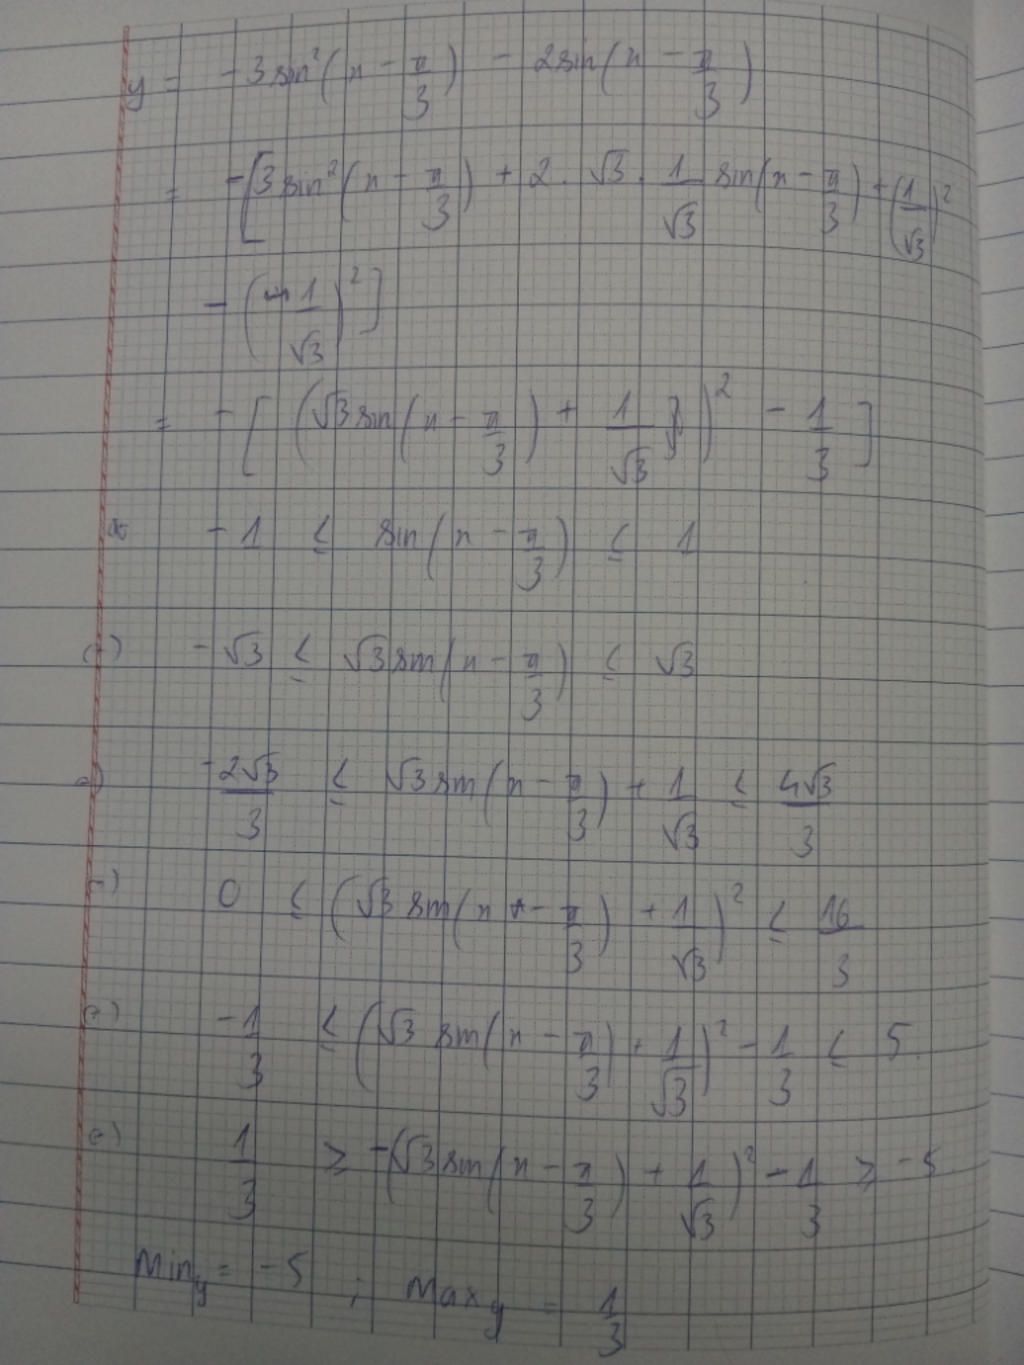 y = -3sin²(x - π/3) - 2sin(x - π/3)
= -[3sin²(x - π/3) + 2. √3. 1/√3 sin(x - π/3) + (1/√3)²
- (1/√3)²]
= -[(√3sin(x - π/3) + 1/√3)² - 1/3]
-1 ≤ sin(x - π/3) ≤ 1
(=) -√3 ≤ √3sin(x - π/3) ≤ √3
(=) -2√3/3 ≤ √3sin(x - π/3) + 1/√3 ≤ 4√3/3
(=) 0 ≤ (√3sin(x - π/3) + 1/√3)² ≤ 16/3
(=) -1/3 ≤ (√3sin(x - π/3) + 1/√3)² - 1/3 ≤ 5
(=) 1/3 ≥ -(√3sin(x - π/3) + 1/√3)² - 1/3 ≥ -5
Min y = -5 ; Max y = 1/3